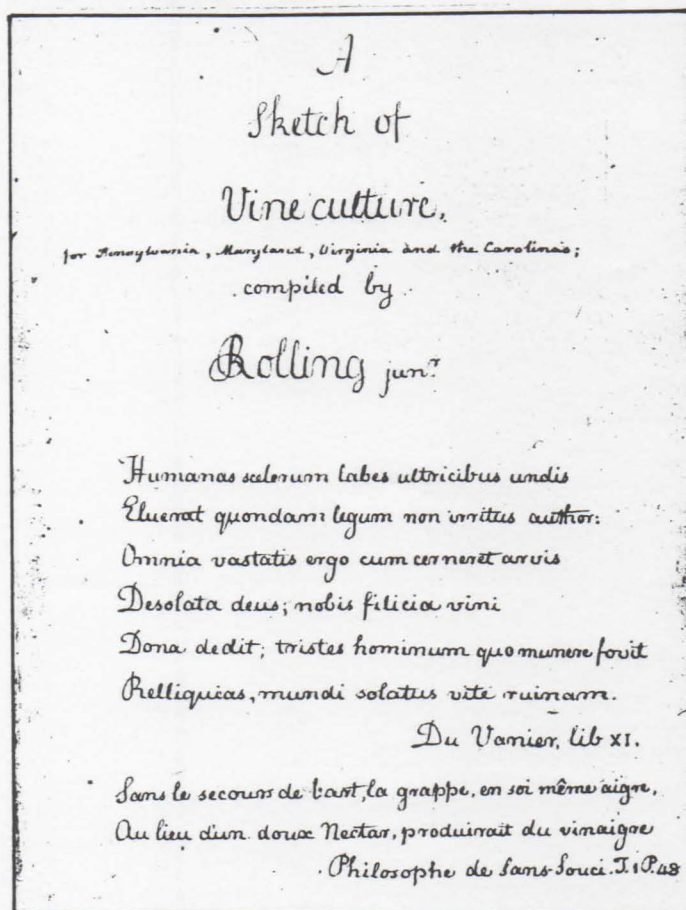 A
Sketch of
Vine culture,
for Pennsylvania, Maryland, Virginia and the Carolinas;
compiled by
Bolling junr.
Humanas scelerum labes ultricibus undis
Eluerat quondam legum non irritus author:
Omnia vastatis ergo cum cerneret arvis
Desolata deus; nobis filicia vini
Dona dedit; tristes hominum quo munere fovit
Relliquias, mundi solatus vite ruinam.
Du Vanier, lib XI.
Sans le secours de l'art, la grappe, en soi même aigre,
Au lieu d'un doux Nectar, produirait du vinaigre
Philosophe de Sans-Souci. T. 1 P. 48